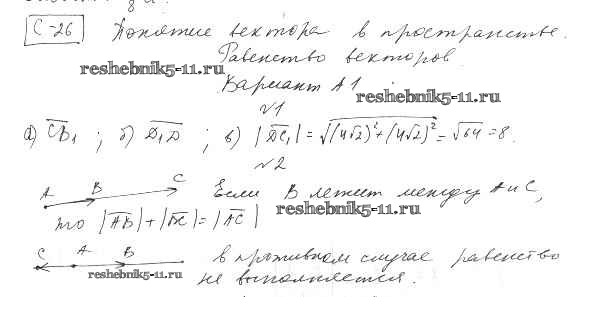 С-26 Понятие вектора в пространстве.
Равенство векторов.
reshebnik5-11.ru
Вариант А1
reshebnik5-11.ru
№1
а) CB₁ ; б) D₁D ; в) |DC₁| = √((4√2)² + (4√2)²) = √64 = 8.
№2
A B C Если B лежит между A и C,
то |AB| + |BC| = |AC|
reshebnik5-11.ru
C A B в противном случае равенство
reshebnik5-11.ru
не выполняется.